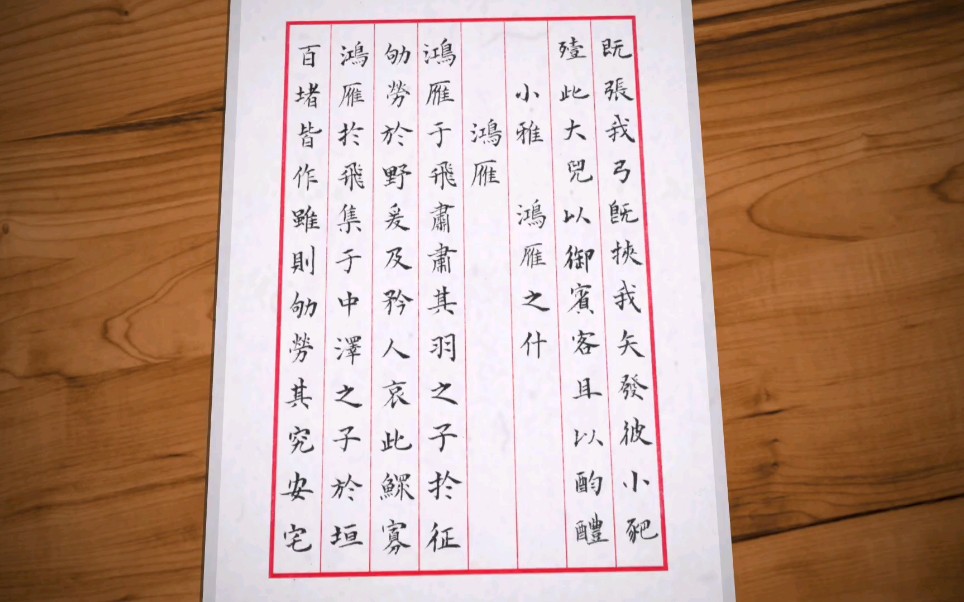 既張我弓既挾我矢發彼小豝
殪此大兕以御賓客且以酌醴
小雅 鴻雁之什
鴻雁
鴻雁于飛肅肅其羽之子扵征
劬勞於野爰及矜人哀此鰥寡
鴻雁扵飛集于中澤之子於垣
百堵皆作雖則劬勞其究安宅